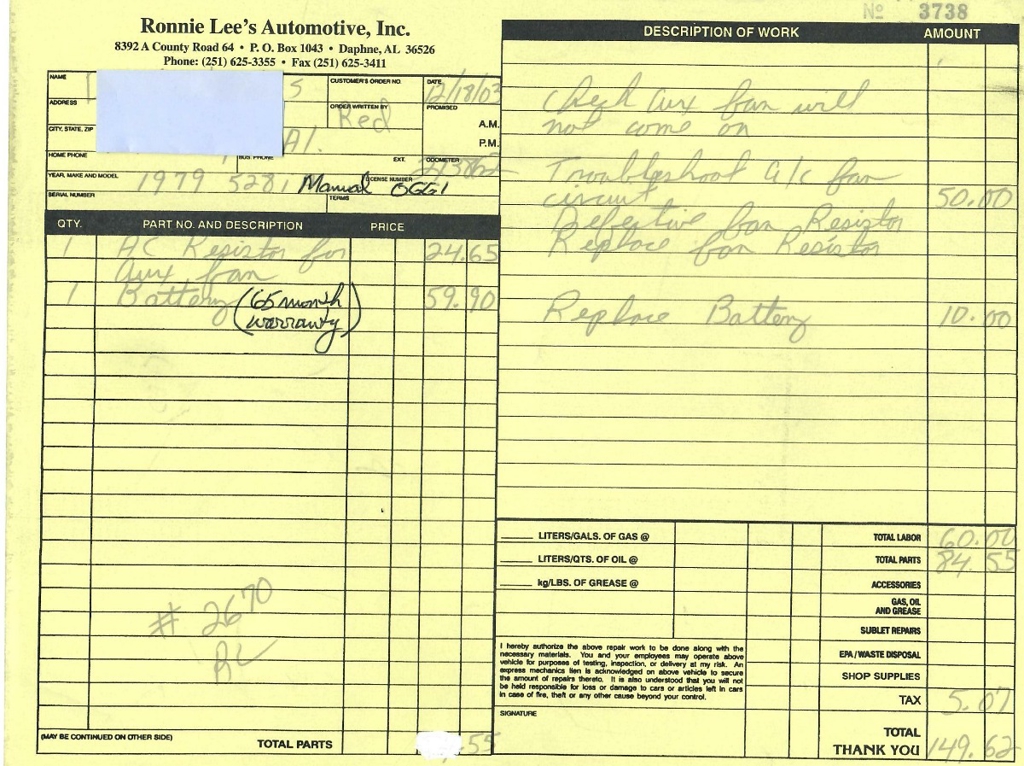 Ronnie Lee's Automotive, Inc.
8392 A County Road 64 • P. O. Box 1043 • Daphne, AL 36526
Phone: (251) 625-3355 • Fax (251) 625-3411
NAME
S
CUSTOMER'S ORDER NO.
DATE
12/18/03
ADDRESS
ORDER WRITTEN BY
Red
PROMISED
A.M.
P.M.
CITY, STATE, ZIP
Al.
HOME PHONE
BUS. PHONE
EXT.
ODOMETER
YEAR, MAKE AND MODEL
1979 528i Manual
LICENSE NUMBER
OGG1
SERIAL NUMBER
TERMS
QTY. PART NO. AND DESCRIPTION PRICE
1 AC Resistor for 24.65
aux fan
1 Battery (65 month 59.90
warranty)
# 2670
RL
(MAY BE CONTINUED ON OTHER SIDE) TOTAL PARTS .55
Nº 3738
DESCRIPTION OF WORK AMOUNT
Check aux fan will
not come on
Troubleshoot a/c fan
circuit 50.00
Defective fan Resistor
Replace fan Resistor
Replace Battery 10.00
LITERS/GALS. OF GAS @
LITERS/QTS. OF OIL @
kg/LBS. OF GREASE @
TOTAL LABOR 60.00
TOTAL PARTS 84.55
ACCESSORIES
GAS, OIL
AND GREASE
SUBLET REPAIRS
EPA / WASTE DISPOSAL
SHOP SUPPLIES
TAX 5.07
TOTAL
THANK YOU 149.62
I hereby authorize the above repair work to be done along with the
necessary materials. You and your employees may operate above
vehicle for purposes of testing, inspection, or delivery at my risk. An
express mechanics lien is acknowledged on above vehicle to secure
the amount of repairs thereto. It is also understood that you will not
be held responsible for loss or damage to cars or articles left in cars
in case of fire, theft or any other cause beyond your control.
SIGNATURE